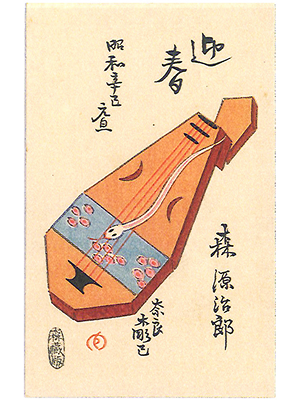 迎春
昭和辛巳元旦
森源治郎
奈良
木彫巳